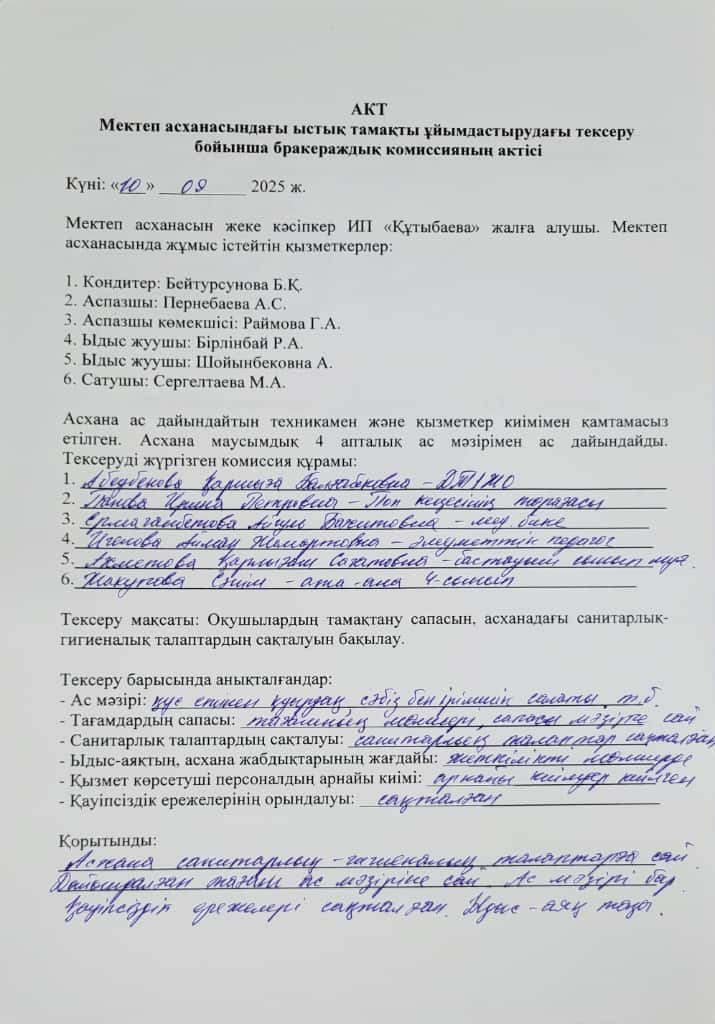 АКТ
Мектеп асханасындағы ыстық тамақты ұйымдастырудағы тексеру
бойынша бракераждық комиссияның актісі
Күні: «10» 09 2025 ж.
Мектеп асханасын жеке кәсіпкер ИП «Құтыбаева» жалға алушы. Мектеп
асханасында жұмыс істейтін қызметкерлер:
1. Кондитер: Бейтурсунова Б.Қ.
2. Аспазшы: Пернебаева А.С.
3. Аспазшы көмекшісі: Раимова Г.А.
4. Ыдыс жуушы: Бірлінбай Р.А.
5. Ыдыс жуушы: Шойынбековна А.
6. Сатушы: Сергелтаева М.А.
Асхана ас дайындайтын техникамен және қызметкер киімімен қамтамасыз
етілген. Асхана маусымдық 4 апталық ас мәзірімен ас дайындайды.
Тексеруді жүргізген комиссия құрамы:
1. Қарлыға – ДТІЖО
2. Ирина Петровна – кеңесінің төрағасы
3. Ермагамбетова Айгуль Бахитовна – мед. бике
4. – әлеуметтік педагог
5. Ахметова Қарлығаш – бастауыш сынып мұғ.
6. Жакупова – ата-ана 4-сынып
Тексеру мақсаты: Оқушылардың тамақтану сапасын, асханадағы санитарлық-
гигиеналық талаптардың сақталуын бақылау.
Тексеру барысында анықталғандар:
- Ас мәзірі: құс етінен қуырдақ, сәбіз бен ірімшік салаты т.б.
- Тағамдардың сапасы: тағамның мөлшері, сапасы мәзірге сай
- Санитарлық талаптардың сақталуы: санитарлық талаптар сақталған
- Ыдыс-аяқтың, асхана жабдықтарының жағдайы: жеткілікті мөлшерде
- Қызмет көрсетуші персоналдың арнайы киімі: арнайы киімдер киілген
- Қауіпсіздік ережелерінің орындалуы: сақталған
Қорытынды:
Асхана санитарлық-гигиеналық талаптарға сай.
Дайындалған тағам ас мәзіріне сай. Ас мәзірі бар.
Қауіпсіздік ережелері сақталған. Ыдыс-аяқ таза.